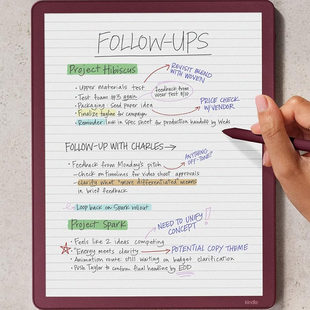 FOLLOW-UPS
Project Hibiscus
REVISIT BLEND
WITH WOVEN
• Upper materials test
• Test foam #3 again
Feedback from
wear test 8/10
• Packaging: Card paper idea
PRICE CHECK
W/VENDOR
• Finalize tagline for campaign
• Reminder: lock in spec sheet for production handoff by Weds
FOLLOW-UP WITH CHARLES →
ANYTHING
OFF-TONE?
• Feedback from Monday's pitch
- Check on timelines for video shoot approvals
- Clarify what "more differentiated" means
in brief feedback
- Loop back on Spark rollout
Project Spark
NEED TO UNIFY
CONCEPT!
• Feels like 2 ideas competing
• "Energy meets clarity" → POTENTIAL COPY THEME
• Animation route: still waiting on budget clarification
• Push Taylor to confirm final heading by EOD
kindle